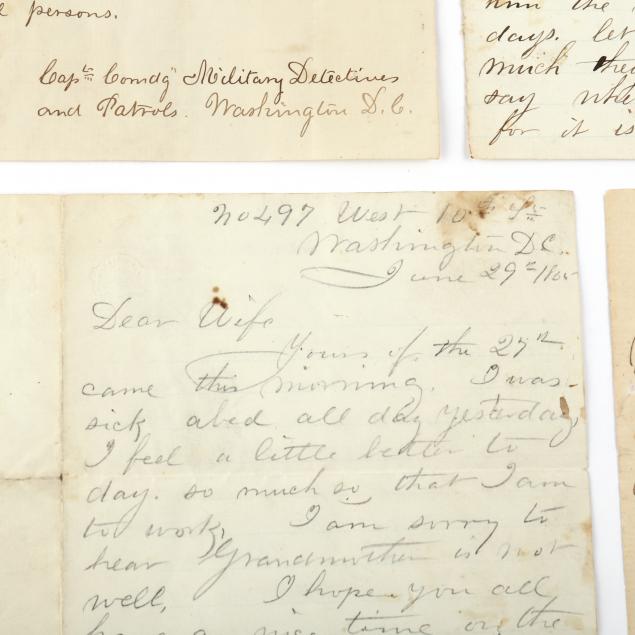 persons.
Capt Comdg Military Detectives
and Patrols. Washington D.C.
him the
days. let
much
say
for it is
No 497 West 10th St
Washington DC.
June 29th 1865
Dear Wife
Yours of the 27th
came this morning. I was
sick abed all day yesterday
I feel a little better to
day. so much so that I am
to work, I am sorry to
hear Grandmother is not
well, I hope you all
have a nice time on the